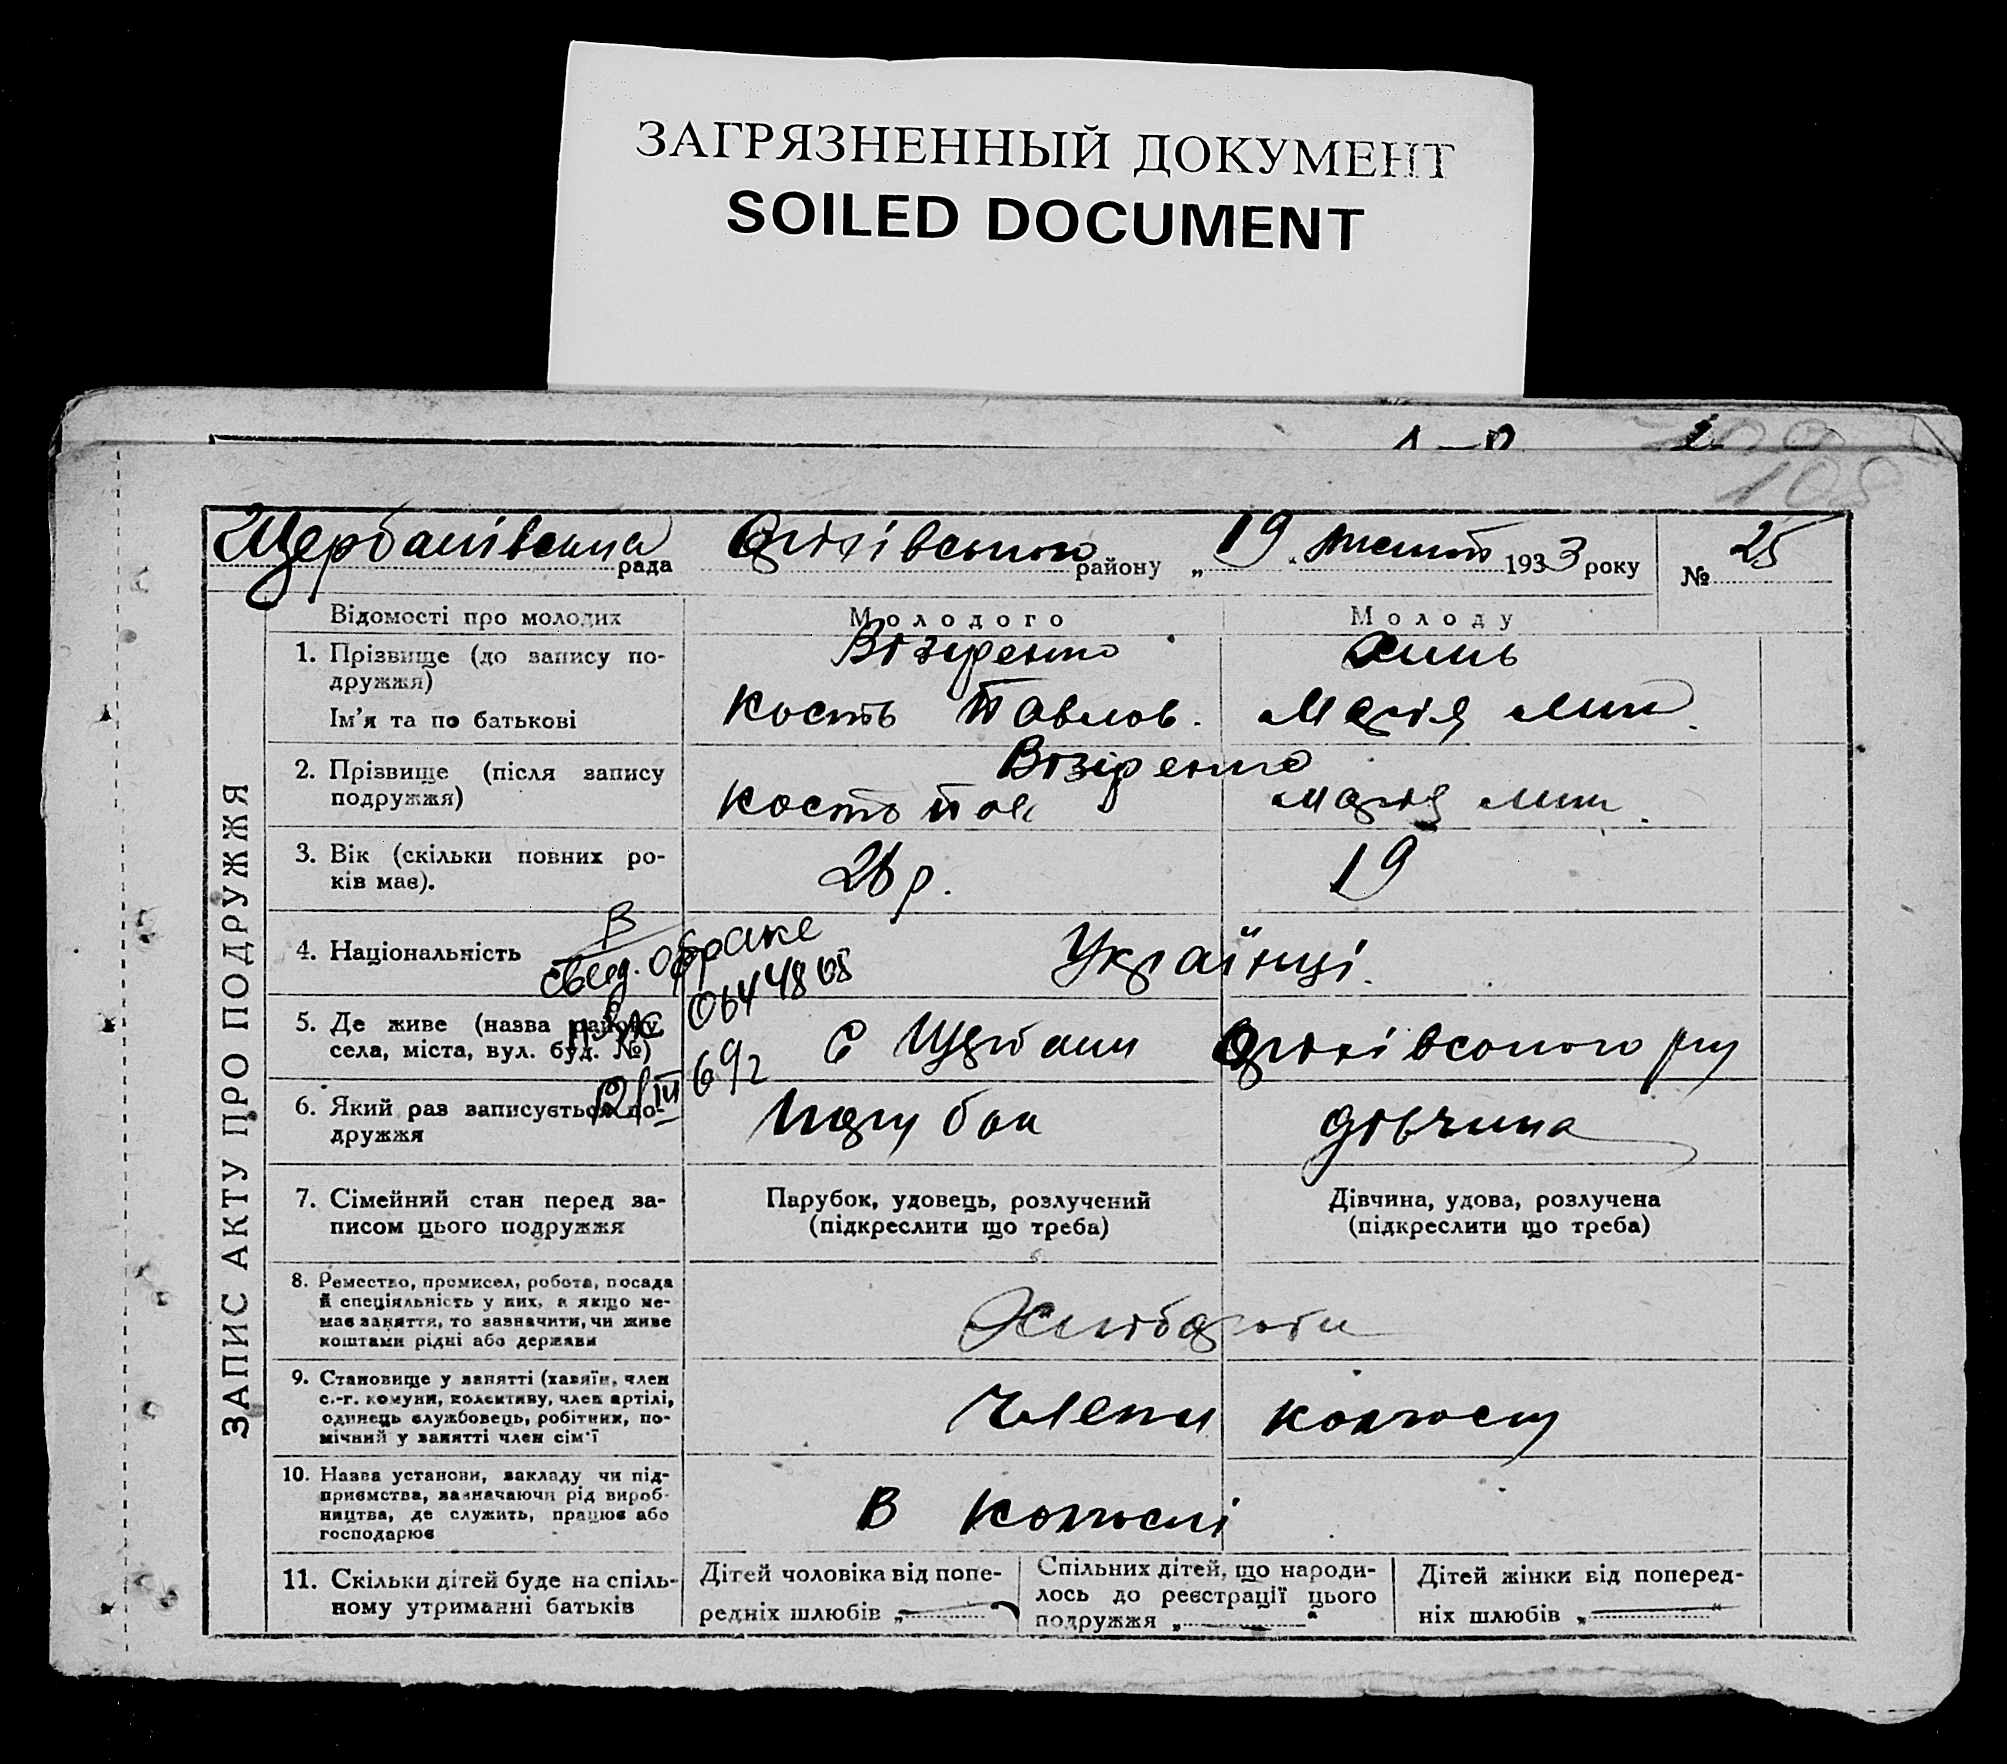 ЗАГРЯЗНЕННЫЙ ДОКУМЕНТ
SOILED DOCUMENT
108
ЗАПИС АКТУ ПРО ПОДРУЖЖЯ
Щербанівська рада району „19“ 1933 року № 25
Відомості про молодих Молодого Молоду
1. Прізвище (до запису по-
дружжя)
Возіренко
Ім'я та по батькові
Кость Павлов. Марія Мик.
2. Прізвище (після запису
подружжя)
Возіренко
Кость Пав Марія Мик.
3. Вік (скільки повних ро-
ків має).
26 р. 19
4. Національність
Українці.
В
свид. о браке
5. Де живе (назва району,
села, міста, вул. буд. №)
с Щербани
6. Який раз записується по-
дружжя
Парубок дівчина
7. Сімейний стан перед за-
писом цього подружжя
Парубок, удовець, розлучений
(підкреслити що треба)
Дівчина, удова, розлучена
(підкреслити що треба)
8. Ремество, промисел, робота, посада
й спеціяльність у них, а якщо не-
має заняття, то зазначити, чи живе
коштами рідні або держави
Хлібороби
9. Становище у занятті (хазяїн, член
с.-г. комуни, колективу, член артілі,
одинець службовець, робітник, по-
мічний у занятті член сім'ї
Члени колгоспу
10. Назва установи, закладу чи під-
приємства, зазначаючи рід вироб-
ництва, де служить, працює або
господарює
В колгоспі
11. Скільки дітей буде на спіль-
ному утриманні батьків
Дітей чоловіка від попе-
редніх шлюбів „
Спільних дітей, що народи-
лось до реєстрації цього
подружжя „ “
Дітей жінки від поперед-
ніх шлюбів „ “